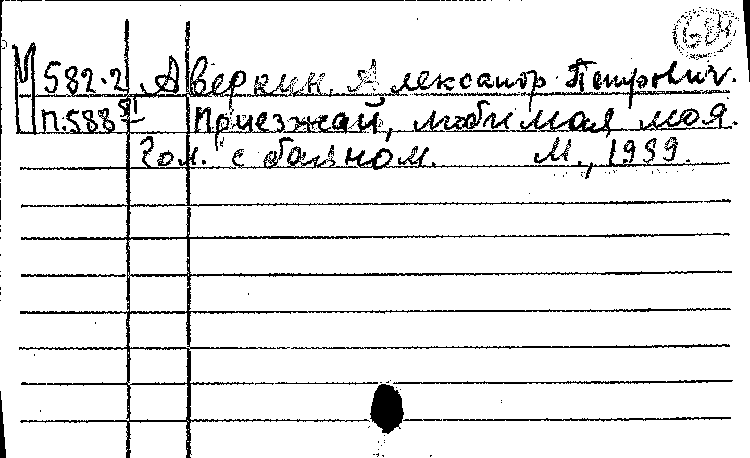 684
М 582.2 Аверкин, Александр Петрович.
П.588 Приезжай, любимая моя.
Гол. с баяном. М., 1989.